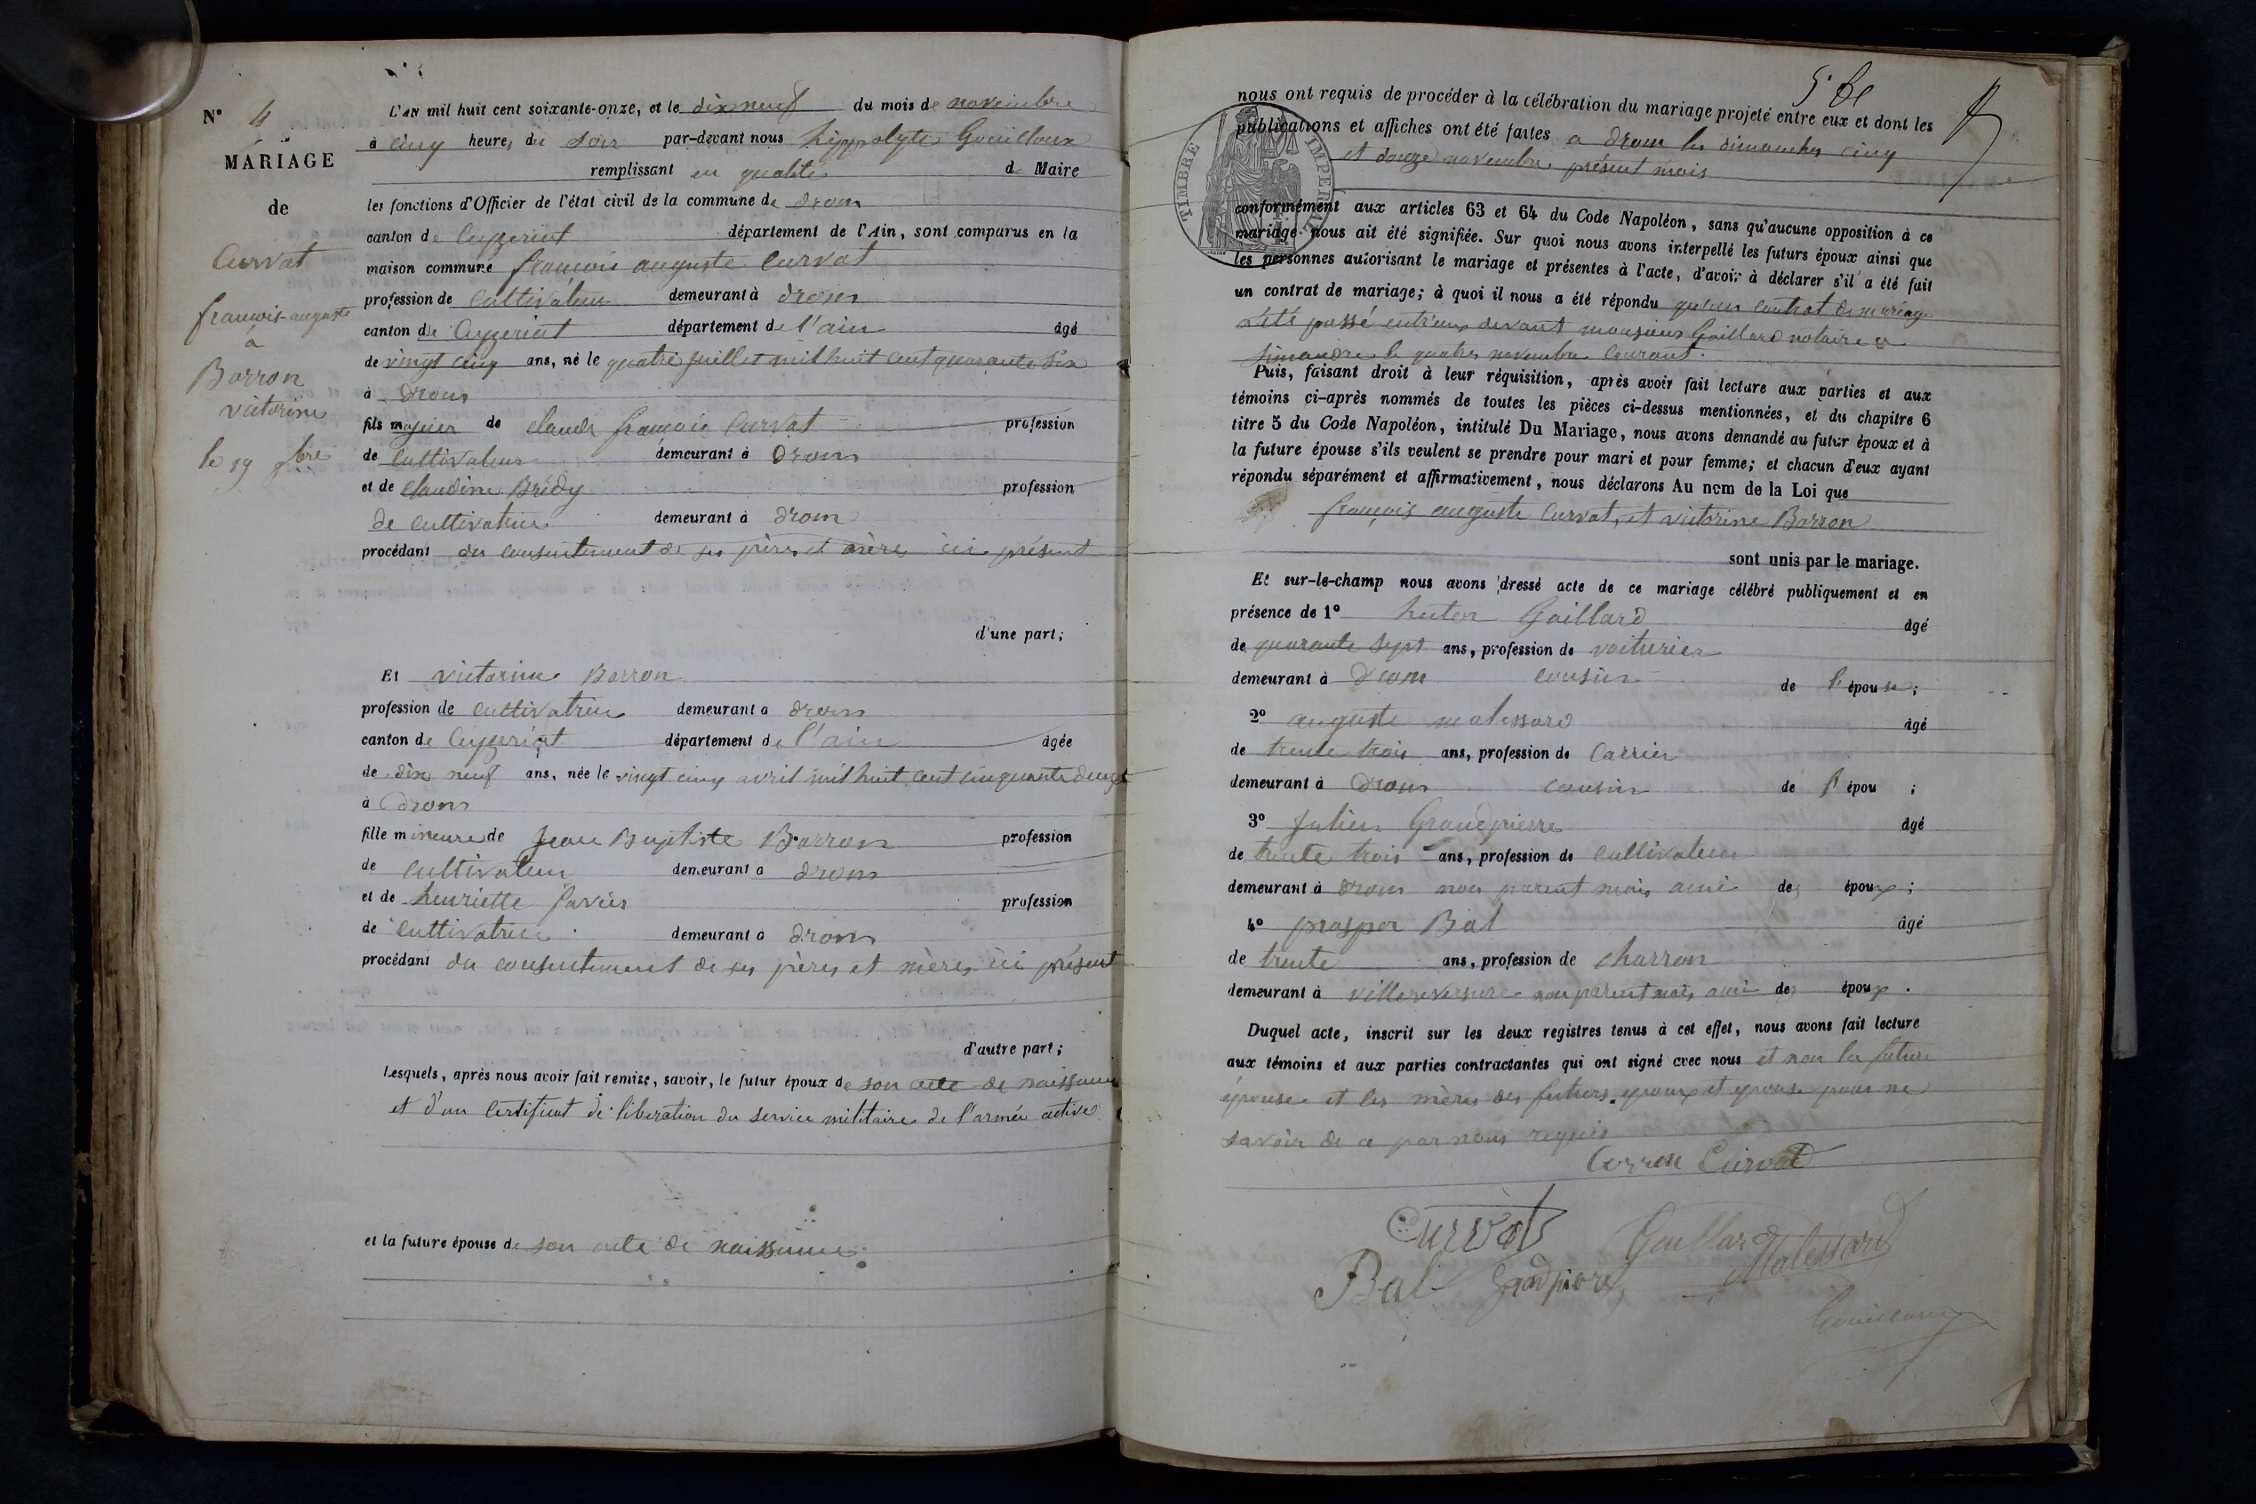 N° 4
MARIAGE
de
Curvat
francois-auguste
à
Borron
victorine
le 19 9bre
L'AN mil huit cent soixante-onze, et le dix neuf du mois de novembre
à cinq heures du soir par-devant nous hippolyte Gouilloux
remplissant en qualité de Maire
les fonctions d'Officier de l'état civil de la commune de drom
canton de Ceyzeriat département de l'Ain, sont comparus en la
maison commune francois auguste Curvat
profession de Cultivateur demeurant à drom
canton de Ceyzeriat département de l'ain âgé
de vingt cinq ans, né le quatre juillet mil huit cent quarante six
à drom
fils majeur de claude françois Curvat profession
de Cultivateur demeurant à Drom
et de claudine Brédy profession
de cultivatrice demeurant à drom
procédant du consentement de ses pères et mères ici présent
d'une part;
Et victorine Borron
profession de cultivatrice demeurant à drom
canton de Ceyzeriat département de l'ain âgée
de dix neuf ans, née le vingt cinq avril mil huit cent cinquante deux
à drom
fille mineure de Jean Baptiste Borron profession
de cultivateur demeurant à drom
et de henriette profession
de Cultivatrice demeurant à drom
procédant du consentement de ses pères et mères ici présent
d'autre part;
Lesquels, après nous avoir fait remise, savoir, le futur époux de son acte de naissance
et d'un Certificat de liberation du service militaire de l'armée active
et la future épouse de son acte de naissance
nous ont requis de procéder à la célébration du mariage projeté entre eux et dont les
publications et affiches ont été faites a drom les dimanches cinq
et douze novembre présent mois
TIMBRE IMPERIAL
conformément aux articles 63 et 64 du Code Napoléon, sans qu'aucune opposition à ce
mariage nous ait été signifiée. Sur quoi nous avons interpellé les futurs époux ainsi que
les personnes autorisant le mariage et présentes à l'acte, d'avoir à déclarer s'il a été fait
un contrat de mariage; à quoi il nous a été répondu qu'un contrat de mariage
a été passé entr'eux devant monsieur Gaillard notaire a
simandre le quatre novembre courant.
Puis, faisant droit à leur réquisition, après avoir fait lecture aux parties et aux
témoins ci-après nommés de toutes les pièces ci-dessus mentionnées, et du chapitre 6
titre 5 du Code Napoléon, intitulé Du Mariage, nous avons demandé au futur époux et à
la future épouse s'ils veulent se prendre pour mari et pour femme; et chacun d'eux ayant
répondu séparément et affirmativement, nous déclarons Au nom de la Loi que
françois auguste Curvat, et victorine Borron
sont unis par le mariage.
Et sur-le-champ nous avons dressé acte de ce mariage célébré publiquement et en
présence de 1° Gaillard âgé
de quarante sept ans, profession de voiturier
demeurant à Drom cousin de l'épouse;
2° auguste malessard âgé
de trente trois ans, profession de Carrier
demeurant à Drom cousin de l'épou ;
3° Julien Grandpierre âgé
de trente trois ans, profession de cultivateur
demeurant à drom non parent mais ami des époux;
4° prosper Bal âgé
de trente ans, profession de charron
demeurant à villereversure non parent mais ami des époux.
Duquel acte, inscrit sur les deux registres tenus à cet effet, nous avons fait lecture
aux témoins et aux parties contractantes qui ont signé avec nous et non la future
épouse et les mères des futurs époux et épouse pour ne
savoir de ce par nous requis
Curvat
Curvat
Gaillard
Malessard
Bal
Grandpierre